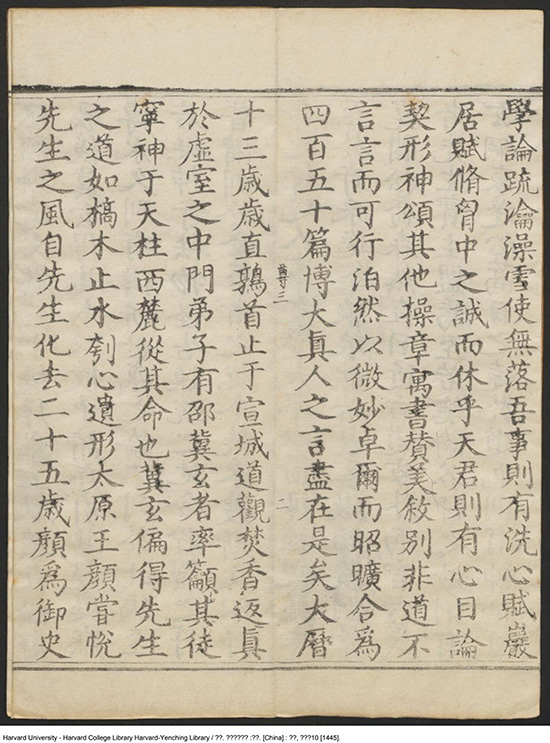 學論疏瀹澡雪使無落吾事則有洗心賦巖
居賦脩胷中之誠而休乎天君則有心目論
契形神頌其他操章寓書賛美敘別非道不
言言而可行泊然以微妙卓爾而昭曠合為
四百五十篇博大真人之言盡在是矣大曆
尊三
二
十三歲歲直鶉首止于宣城道觀焚香返真
於虛室之中門弟子有邵冀玄者率籲其徒
寧神于天柱西麓從其命也冀玄偏得先生
之道如槁木止水刳心遺形太原王顔嘗悅
先生之風自先生化去二十五歲顔為御史
Harvard University - Harvard College Library Harvard-Yenching Library / ??. ?????? :??. [China] : ??, ???10 [1445].